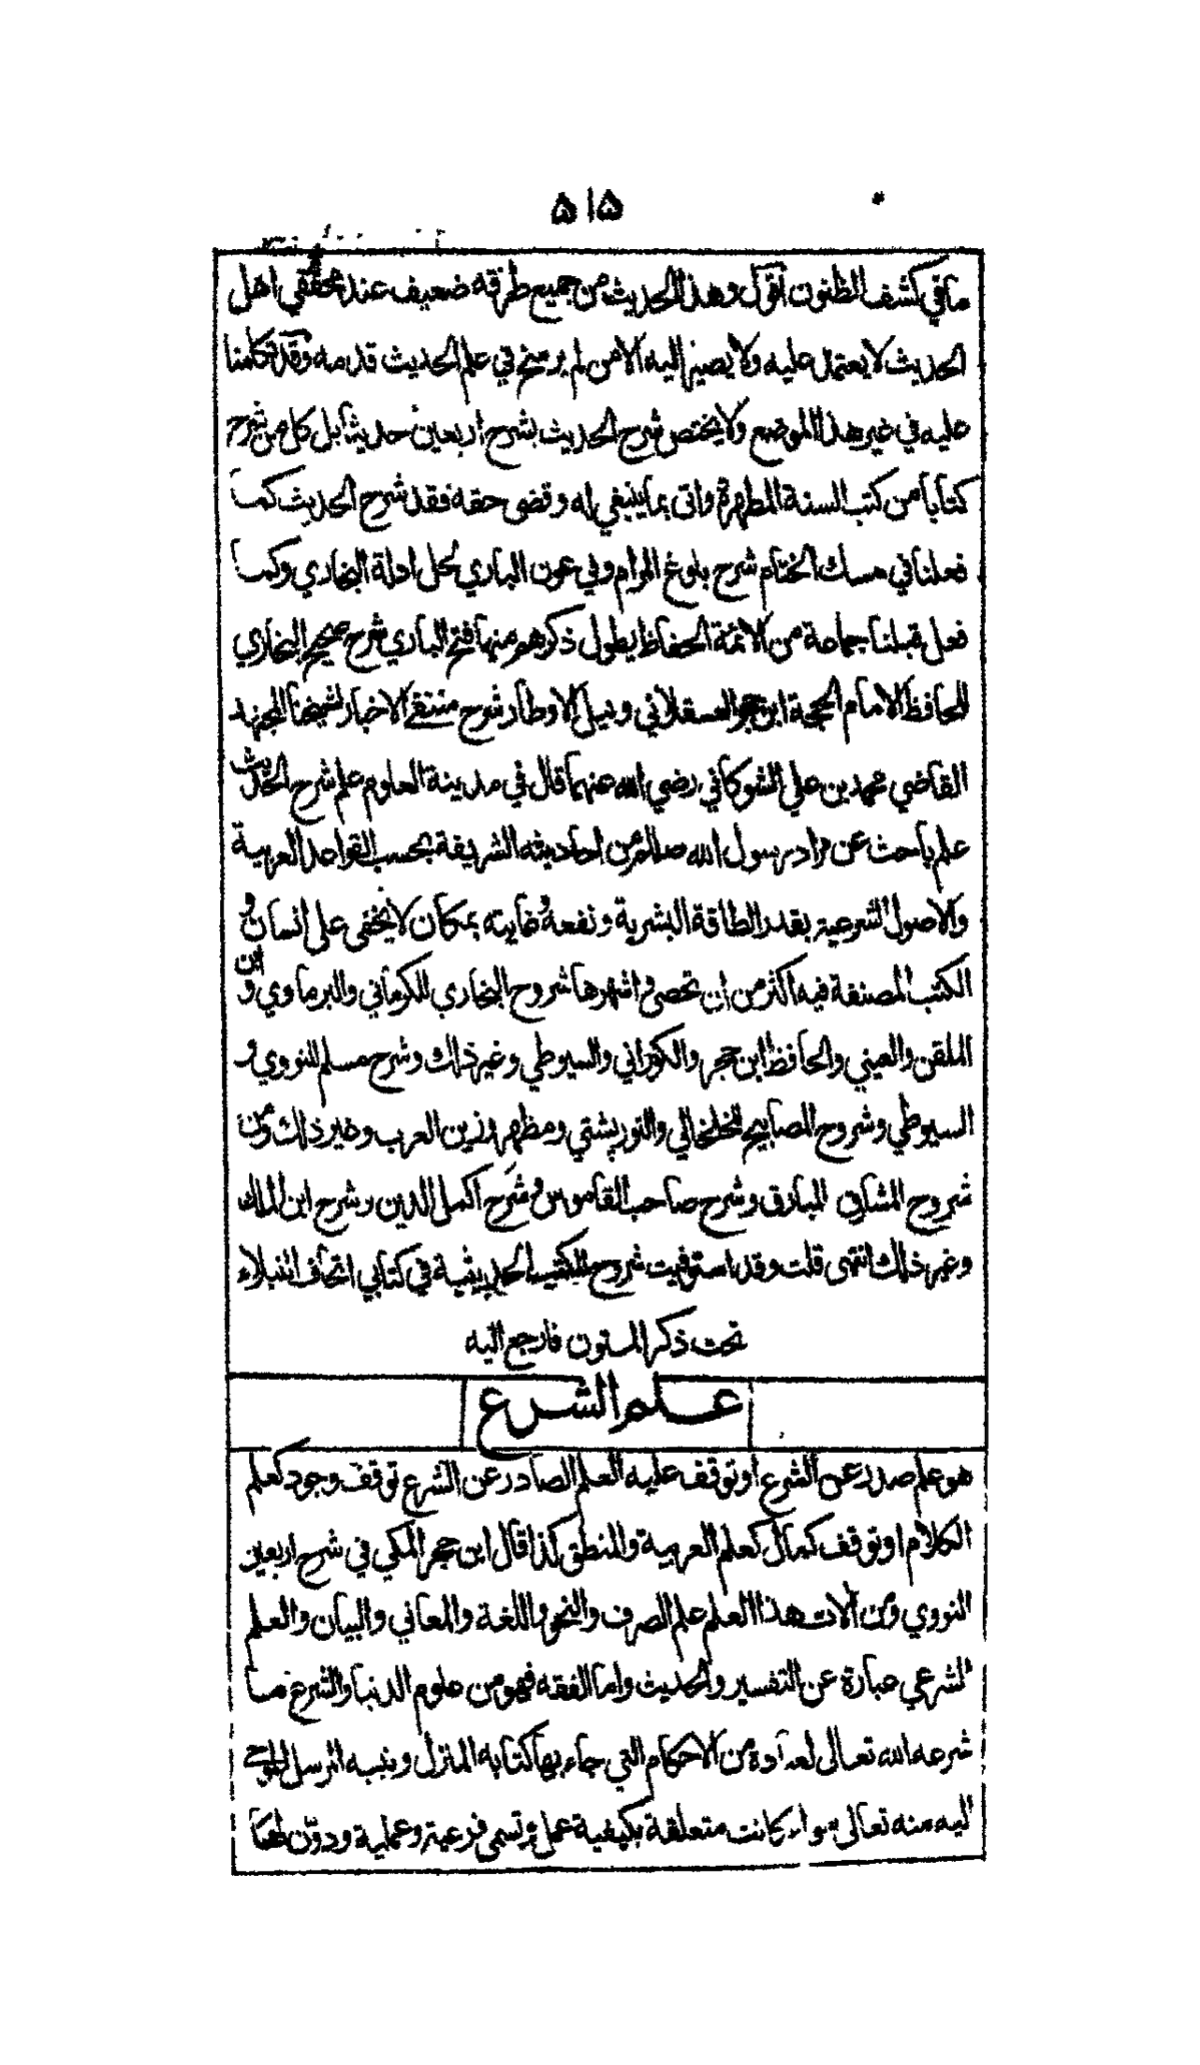 ٥١٥
ما في كشف الظنون اقول وهذا الحديث من جميع طرقه ضعيف عند محققي اهل
الحديث لا يعتمد عليه ولا يصير اليه الا من لم يرسخ في علم الحديث قدمه وقد تكلمنا
عليه في غير هذا الموضع ولا يختص شرح الحديث بشرح اربعين حديثا بل كل من شرح
كتابا من كتب السنة المطهرة واتى بما ينبغي له وقضى حقه فقد شرح الحديث كما
فعلنا في مسك الختام شرح بلوغ المرام وفي عون الباري لحل ادلة البخاري وكما
فعل قبلنا جماعة من الائمة الحفاظ يطول ذكرهم منها فتح الباري شرح صحيح البخاري
للحافظ الامام الحجة ابن حجر العسقلاني ونيل الاوطار شرح منتقى الاخبار لشيخنا المجتهد
القاضي محمد بن علي الشوكاني رضي الله عنهما قال في مدينة العلوم علم شرح الحديث
علم باحث عن مراد رسول الله صللم من احاديثه الشريفة بحسب القواعد العربية
والاصول الشرعية بقدر الطاقة البشرية ونفعه وغايته بمكان لا يخفى على انسان و
الكتب المصنفة فيه اكثر من ان تحصى واشهرها شروح البخاري للكرماني والبرماوي وابن
الملقن والعيني والحافظ ابن حجر والكوراني والسيوطي وغير ذلك وشرح مسلم للنووي و
السيوطي وشروح المصابيح للخلخالي والتورپشتي ومظهر وزين العرب وغير ذلك ومن
شروح المشارق المبارق وشرح صاحب القاموس وشرح اكمل الدين وشرح ابن الملك
وغير ذلك انتهى قلت وقد استوفيت شروح الكتب الحديثية في كتابي اتحاف النبلاء
تحت ذكر المتون فارجع اليه
علم الشرع
هو علم صدر عن الشرع او توقف عليه العلم الصادر عن الشرع توقف وجود كعلم
الكلام او توقف كمال كعلم العربية والمنطق كذا قال ابن حجر المكي في شرح اربعين
النووي ومن آلات هذا العلم علم الصرف والنحو واللغة والمعاني والبيان والعلم
الشرعي عبارة عن التفسير والحديث واما الفقه فهو من علوم الدنيا والشرع ما
شرعه الله تعالى لعباده من الاحكام التي جاء بها كتابه المنزل ونبيه المرسل الموحى
اليه منه تعالى سواء كانت متعلقة بكيفية عمل وتسمى فرعية وعملية ودوّن لها